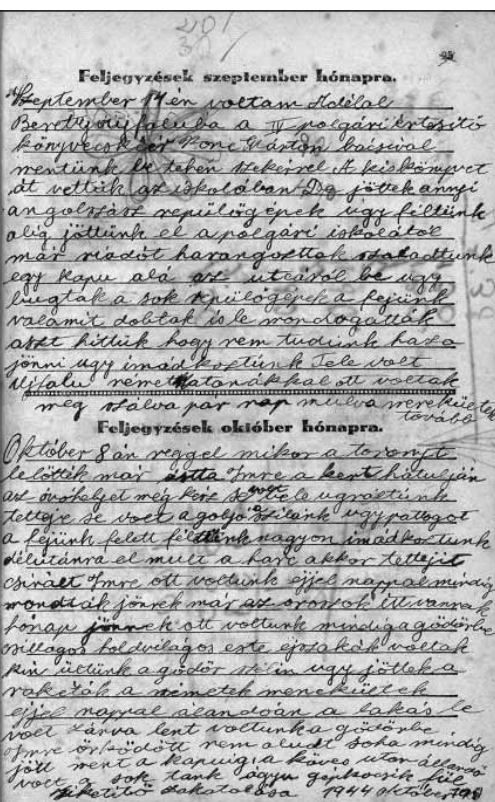 201
30
95
Feljegyzések szeptember hónapra.
Szeptember 14 én voltam Adélal
Berettyóujfaluba a IV polgári értesitő
könyvecskéér Konc Márton bácsival
mentünk be tehén szekérrel A kiskönyvet
át vettük az iskolában De jöttek annyi
angolszász repülőgépek ugy féltünk
alig jöttünk el a polgári iskolától
már riadót harangoztak szaladtunk
egy kapu alá az utcáról be ugy
bugtak a sok repülőgépek a fejünk
valamit dobtak is le mondogatták
aszt hittük hogy nem tudunk haza
jönni ugy imádkoztunk Tele volt
Ujfalu német katonákkal ott voltak
meg szálva pár nap mulva mentek
tovább
Feljegyzések október hónapra.
Október 8 án reggel mikor a tornyot
lelőtték már Imre a kert hátulján
az óvóhelyet még kész se volt bele ugráltunk
tetteje se volt a goljó szilánk ugy pattogot
a fejünk felett féltünk nagyon imádkoztunk
délutánra el mult a harc akkor tettejit
csinált Imre ott voltunk éjjel nappal mindig
mondták jönnek már az oroszok itt vannak
hónap jönnek ott voltunk mindig a gödörbe
csillagos holdvilágos este éjszakák voltak
kin ültünk a gödör szélin ugy jöttek a
rakéták a németek menekültek
éjjel nappal álandóan a lakás le
volt zárva lent voltunk a gödörbe
Imre őrködött nem aludt soha mindig
jött ment a kapuig a köves uton állandó
volt a sok tank ágyu gépkocsik fül
siketitő zakatolása 1944 október